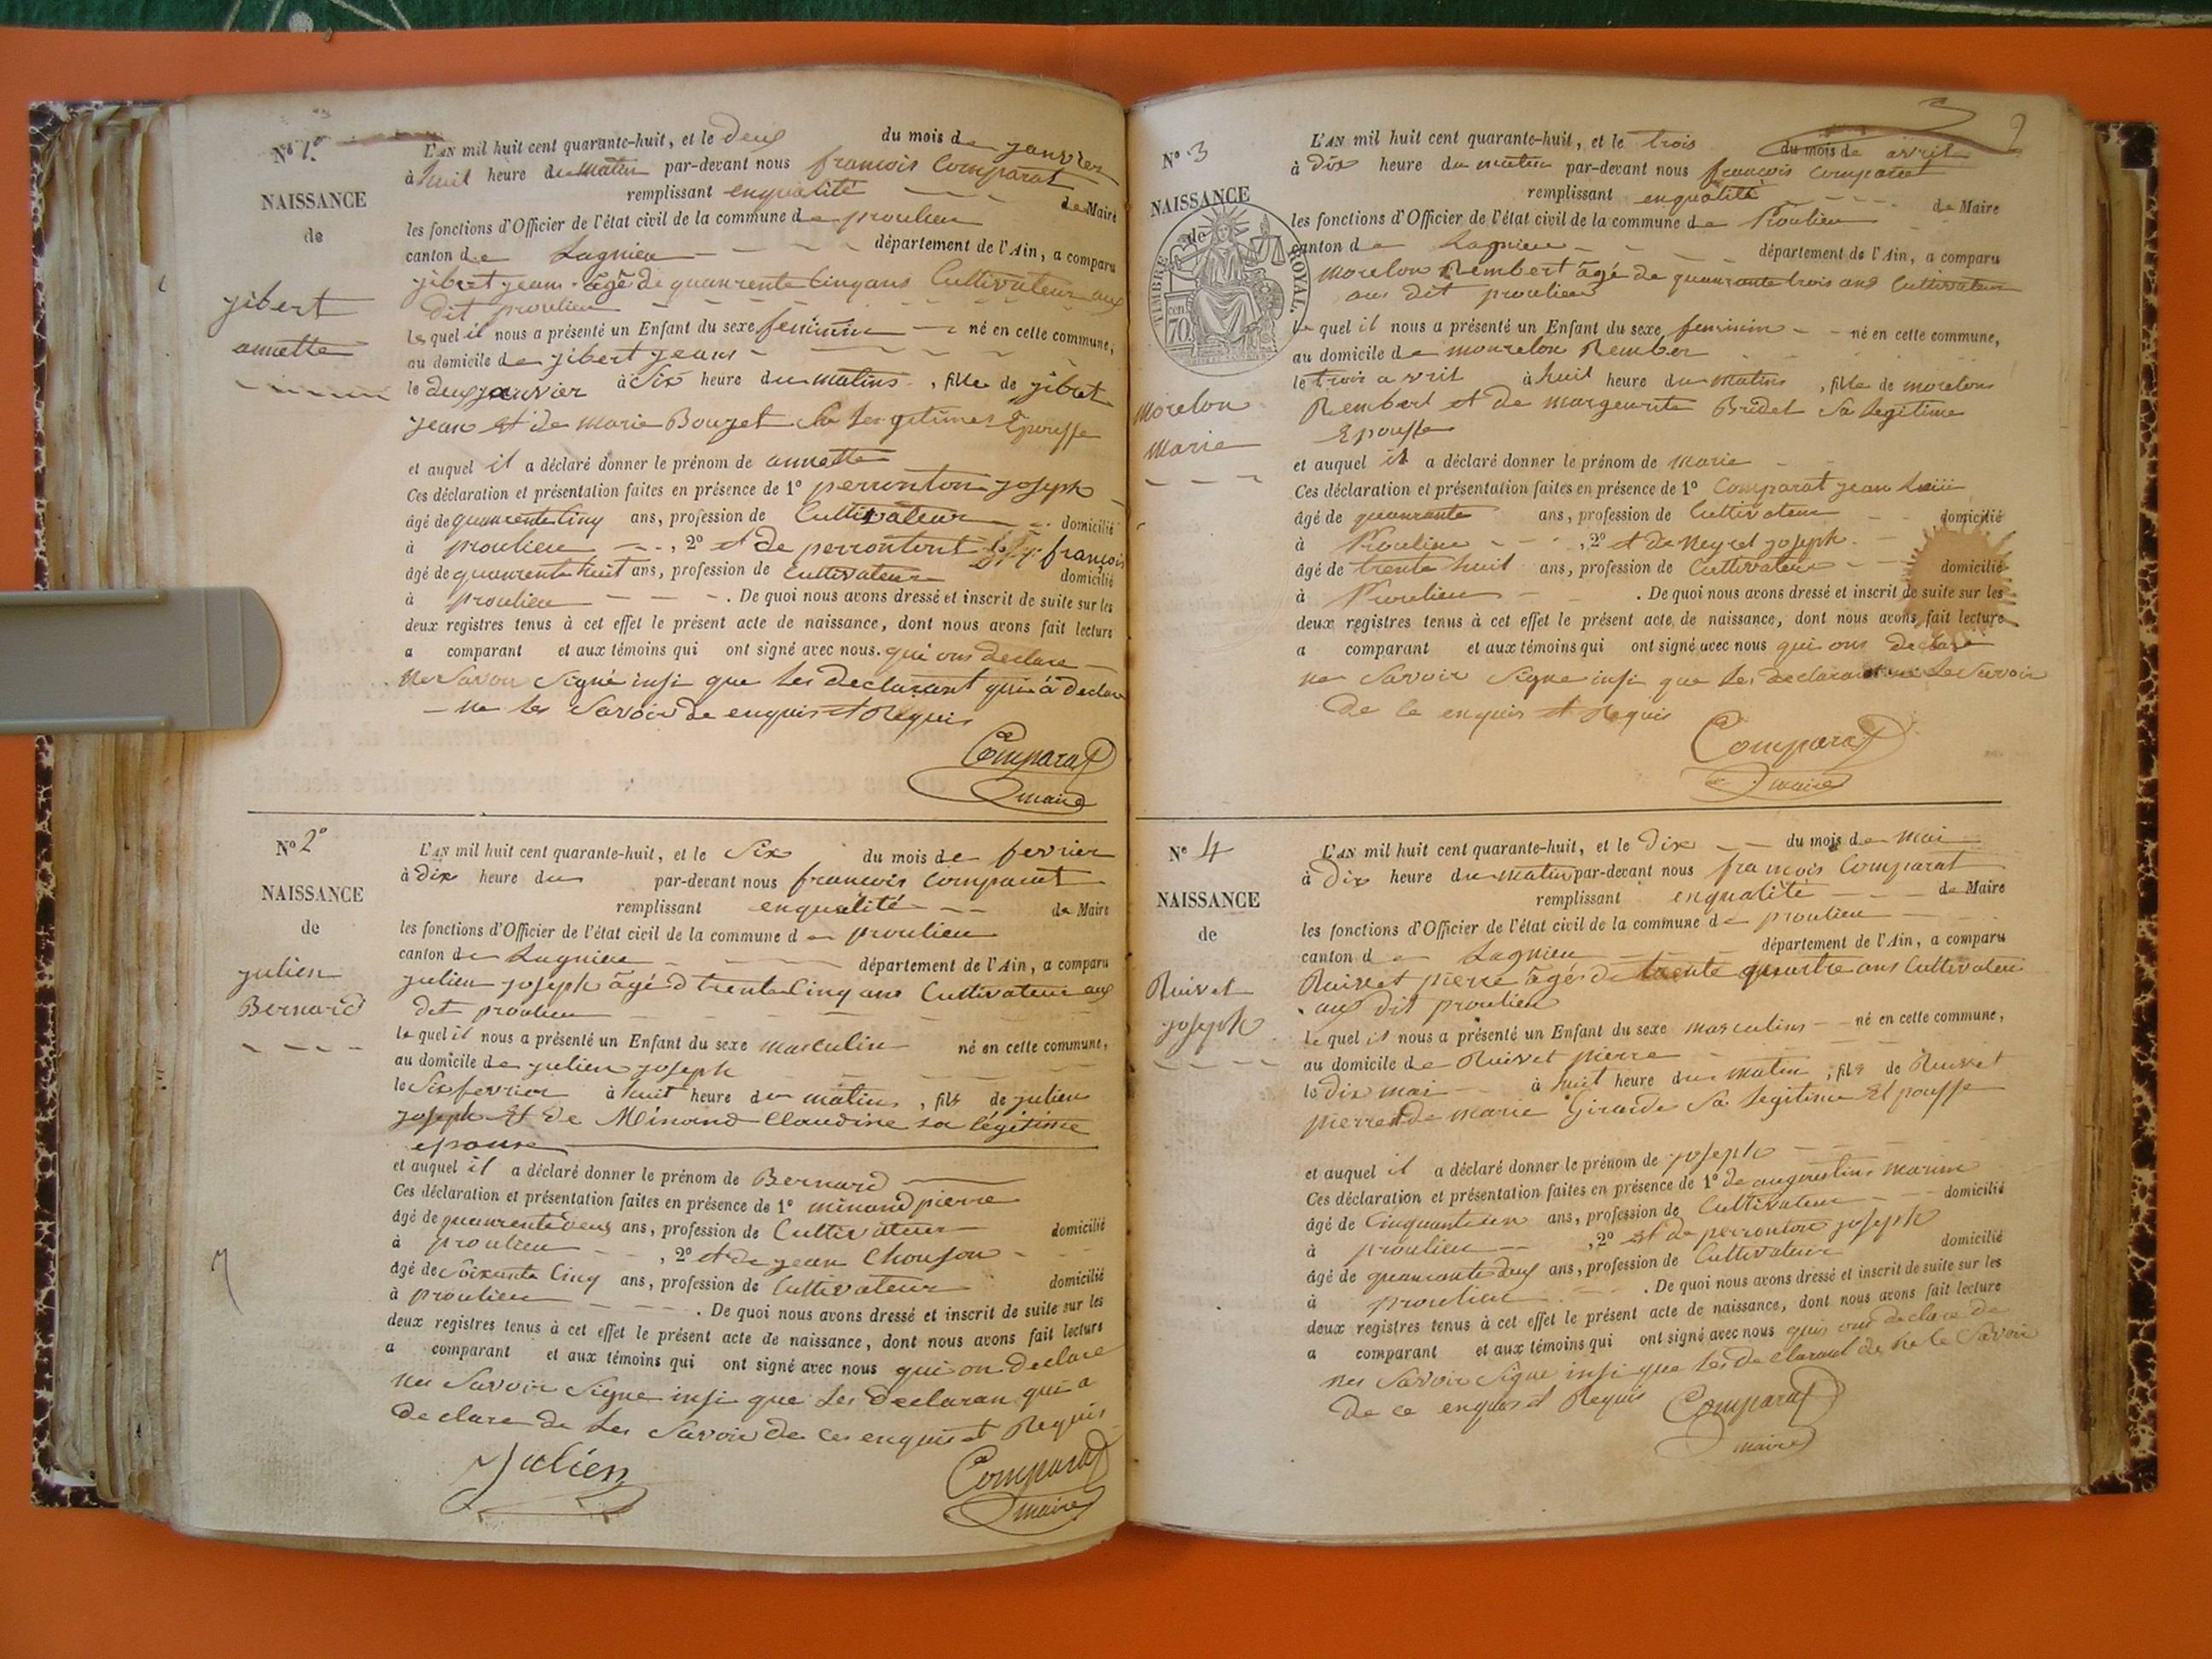 N° 1.°
NAISSANCE
de
jibert
annette
L'AN mil huit cent quarante-huit, et le deux du mois de janvier
à huit heure du matin par-devant nous francois Comparat
remplissant enqualité de Maire
les fonctions d'Officier de l'état civil de la commune de proulieu
canton de Lagnieu département de l'Ain, a comparu
jibert jean âgé de quanrente Cinq ans Cultivateur aux
dit proulieu
le quel il nous a présenté un Enfant du sexe feminin né en cette commune,
au domicile de jibert jean
le deux janvier à Six heure du matins, fille de jibert
jean et de marie Bouzet Sa legitimes Epousse
et auquel il a déclaré donner le prénom de annette
Ces déclaration et présentation faites en présence de 1° perronton joseph
âgé de quanrente Cinq ans, profession de Cultivateur domicilié
à proulieu, 2° et de perrontont françois
âgé de quanrente huit ans, profession de Cultivateur domicilié
à proulieu. De quoi nous avons dressé et inscrit de suite sur les
deux registres tenus à cet effet le présent acte de naissance, dont nous avons fait lecture
a comparant et aux témoins qui ont signé avec nous. qui ons declare
ne Savoir Signé insi que Les declarant qui à declare
ne les Savoir de enquis et Requis
Comparat
maire
N° 2°
NAISSANCE
de
julien
Bernard
L'AN mil huit cent quarante-huit, et le Six du mois de fevrier
à dix heure du par-devant nous francois Comparat
remplissant enqualité de Maire
les fonctions d'Officier de l'état civil de la commune de proulieu
canton de Lagnieu département de l'Ain, a comparu
julien joseph âgé d trente Cinq ans Cultivateur aux
dit proulieu
le quel il nous a présenté un Enfant du sexe masculin né en cette commune,
au domicile de julien joseph
le Six fevrier à huit heure du matins, fils de julien
joseph et de Minand Claudine sa légitime
epouse
et auquel il a déclaré donner le prénom de Bernard
Ces déclaration et présentation faites en présence de 1° minand pierre
âgé de quanrente deux ans, profession de Cultivateur domicilié
à proulieu, 2° et de jean Chouson
âgé de soixante Cinq ans, profession de Cultivateur domicilié
à proulieu. De quoi nous avons dressé et inscrit de suite sur les
deux registres tenus à cet effet le présent acte de naissance, dont nous avons fait lecture
a comparant et aux témoins qui ont signé avec nous qui on declare
ne Savoir Signe insi que Les declaran qui a
declare de Les Savoir de ces enquis et Requis
Julien
Comparat
maire
N° 3
NAISSANCE
de
TIMBRE ROYAL
cent 70
morelon
marie
L'AN mil huit cent quarante-huit, et le trois du mois de avril
à dix heure du matin par-devant nous françois Comparat
remplissant enqualité de Maire
les fonctions d'Officier de l'état civil de la commune de Proulieu
canton de Lagnieu département de l'Ain, a comparu
morelon Rembert âgé de quanrante trois ans Cultivateur
aux dit proulieu
le quel il nous a présenté un Enfant du sexe feminin né en cette commune,
au domicile de mourelon Rember
le trois avril à huit heure du matins, fille de morelons
Rembert et de margeurite Bridet Sa Legitime
Epousse
et auquel il a déclaré donner le prénom de marie
Ces déclaration et présentation faites en présence de 1° Comparat jean
âgé de quanrante ans, profession de Cultivateur domicilié
à Proulieu, 2° et de Neyret joseph
âgé de trente huit ans, profession de Cultivateur domicilié
à Proulieu. De quoi nous avons dressé et inscrit de suite sur les
deux registres tenus à cet effet le présent acte de naissance, dont nous avons fait lecture
a comparant et aux témoins qui ont signé avec nous qui ons declare
ne Savoir Signe insi que Les declarant ne Le Savoir
de ce enquis et Requis
Comparat
maire
N° 4
NAISSANCE
de
Ruivet
joseph
L'AN mil huit cent quarante-huit, et le dix du mois de mai
à dix heure du matin par-devant nous francois Comparat
remplissant enqualité de Maire
les fonctions d'Officier de l'état civil de la commune de proulieu
canton d Lagnieu département de l'Ain, a comparu
Ruivet pierre âgés de trente quartre ans Cultivateur
aux dit proulieu
le quel il nous a présenté un Enfant du sexe masculins né en cette commune,
au domicile de Ruivet pierre
le dix mai à huit heure du matin, fils de Ruivet
pierre et de marie Girarde Sa Legitime Epousse
et auquel il a déclaré donner le prénom de joseph
Ces déclaration et présentation faites en présence de 1° de augeustins marin
âgé de Cinquante un ans, profession de Cultivateur domicilié
à proulieu, 2° et de perronton joseph
âgé de quanrante deux ans, profession de Cultivateur domicilié
à proulieu. De quoi nous avons dressé et inscrit de suite sur les
deux registres tenus à cet effet le présent acte de naissance, dont nous avons fait lecture
a comparant et aux témoins qui ont signé avec nous quis ons declare de
ne Savoir Signe insi que Les declarant de ne Le Savoir
de ce enquis et Requis
Comparat
maire